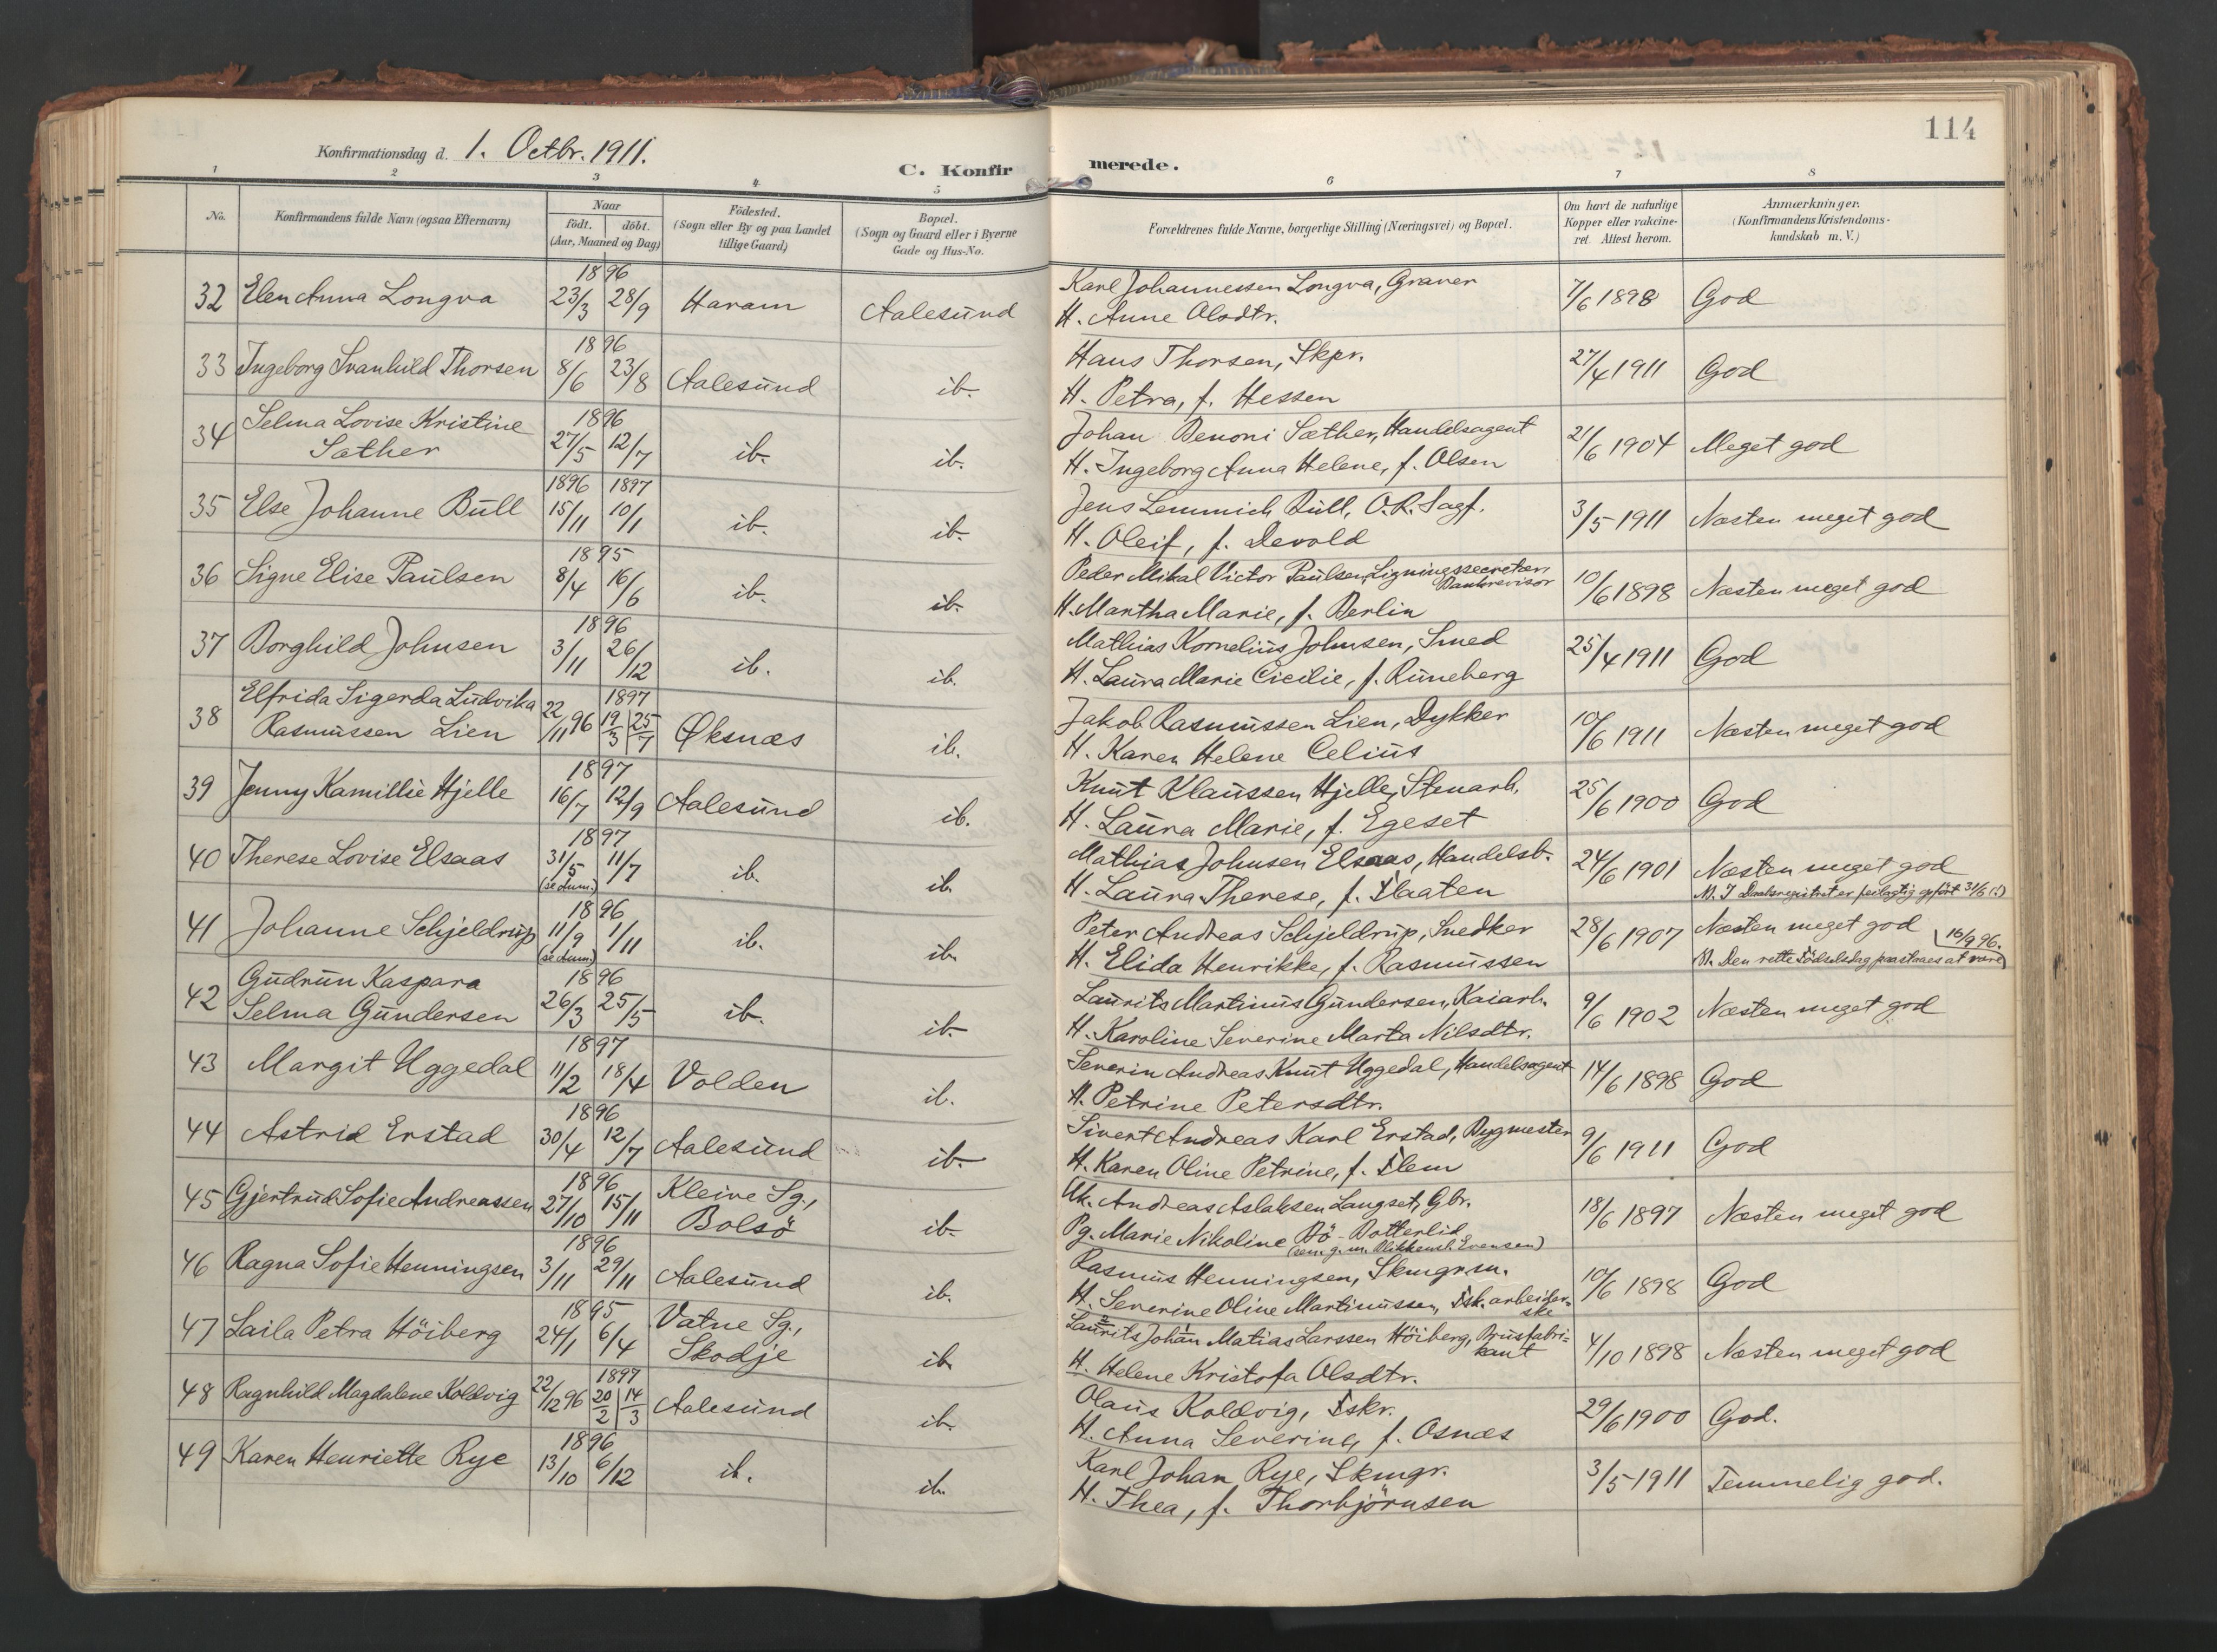 114
Konfirmationsdag d. 1. Octbr. 1911.
C. Konfirmerede.
1 2 3 4 5 6 7 8
No. Konfirmandens fulde Navn (ogsaa Efternavn) Naar födt. döbt. (Aar, Maaned og Dag) Födested. (Sogn eller By og paa Landet tillige Gaard) Bopæl. (Sogn og Gaard eller i Byerne Gade og Hus-No. Forældrenes fulde Navne, borgerlige Stilling (Næringsvei) og Bopæl. Om havt de naturlige Kopper eller vakcineret. Attest herom. Anmærkninger. (Konfirmandens Kristendomskundskab m. V.)
32 Elen Anna Longva 1896 23/3 28/9 Haram Aalesund Karl Johannessen Longva, Graver 7/6 1898 God
H. Anne Olsdtr.
33 Ingeborg Svanhild Thorsen 1896 8/6 23/8 Aalesund ib. Hans Thorsen, Skpr. 27/4 1911 God
H. Petra, f. Hessen
34 Selma Lovise Kristine Sæther 1896 27/5 12/7 ib. ib. Johan Benoni Sæther, Handelsagent 21/6 1904 Meget god
H. Ingeborg Anna Helene, f. Olsen
35 Else Johanne Bull 1896 15/11 1897 10/1 ib. ib. Jens Lemmich Bull, O.R. Sagf. 3/5 1911 Næsten meget god
H. Oleif, f. Devold
36 Signe Elise Paulsen 1895 8/4 16/6 ib. ib. Peder Mikal Victor Paulsen, Ligningssecretær, Bankrevisor 10/6 1898 Næsten meget god
H. Martha Marie, f. Berlin
37 Borghild Johnsen 1896 3/11 26/12 ib. ib. Mathias Kornelius Johnsen, Smed 25/4 1911 God
H. Laura Marie Cicilie, f. Runeberg
38 Elfrida Sigerda Ludvika Rasmussen Lien 22/11 96 1897 19/3 25/7 Øksnæs ib. Jakob Rasmussen Lien, Dykker 10/6 1911 Næsten meget god
H. Karen Helene Celius
39 Jenny Kamillie Hjelle 1897 16/7 12/9 Aalesund ib. Knut Klaussen Hjelle, Stenarb. 25/6 1900 God
H. Laura Marie, f. Egeset
40 Therese Lovise Elsaas 1897 31/5 (se Anm.) 11/7 ib. ib. Mathias Johnsen Elsaas, Handelsb. 24/6 1901 Næsten meget god
H. Laura Therese, f. Flaaten M. I Daabsregistret er feilagtig opført 31/6 (!)
41 Johanne Schjeldrup 1896 11/9 (se Anm.) 1/11 ib. ib. Peter Andreas Schjeldrup, Snedker 28/6 1907 Næsten meget god
H. Elida Henrikke, f. Rasmussen (M. Den rette Födselsdag paastaaes at være) 16/9 96.
42 Gudrun Kaspara Selma Gundersen 1896 26/3 25/5 ib. ib. Laurits Martinus Gundersen, Kaiarb. 9/6 1902 Næsten meget god
H. Karoline Severine Marta Nilsdtr.
43 Margit Uggedal 1897 11/2 18/4 Volden ib. Severin Andreas Knut Uggedal, Handelsagent 14/6 1898 God
H. Petrine Petersdtr.
44 Astrid Erstad 1896 30/4 12/7 Aalesund ib. Sivert Andreas Karl Erstad, Bygmester 9/6 1911 God
H. Karen Oline Petrine, f. Flem
45 Gjertrud Sofie Andreassen 1896 27/10 15/11 Kleive Sg., Bolsö ib. Uk. Andreas Aslaksen Langset, Gbr. 18/6 1897 Næsten meget god
Pg. Marie Nikoline Bö-Botterlid
(sen. g. m. Blikkensl. Evensen)
46 Ragna Sofie Henningsen 1896 3/11 29/11 Aalesund ib. Rasmus Henningsen, Skmgrsn. 10/6 1898 God
H. Severine Oline Martinussen, Fsk.arbeiderske
47 Laila Petra Höiberg 1895 24/1 6/4 Vatne Sg., Skodje ib. Laurits Johan Matias Larssen Höiberg, Brusfabrikant 4/10 1898 Næsten meget god
H. Helene Kristofa Olsdtr.
48 Ragnhild Magdalene Koldvig 22/12 96 1897 20/2 14/3 Aalesund ib. Olaus Koldvig, Fskr. 29/6 1900 God.
H. Anna Severine, f. Osnæs
49 Karen Henriette Rye 1896 13/10 6/12 ib. ib. Karl Johan Rye, Skmgr. 3/5 1911 Temmelig god.
H. Thea, f. Thorbjörnsen